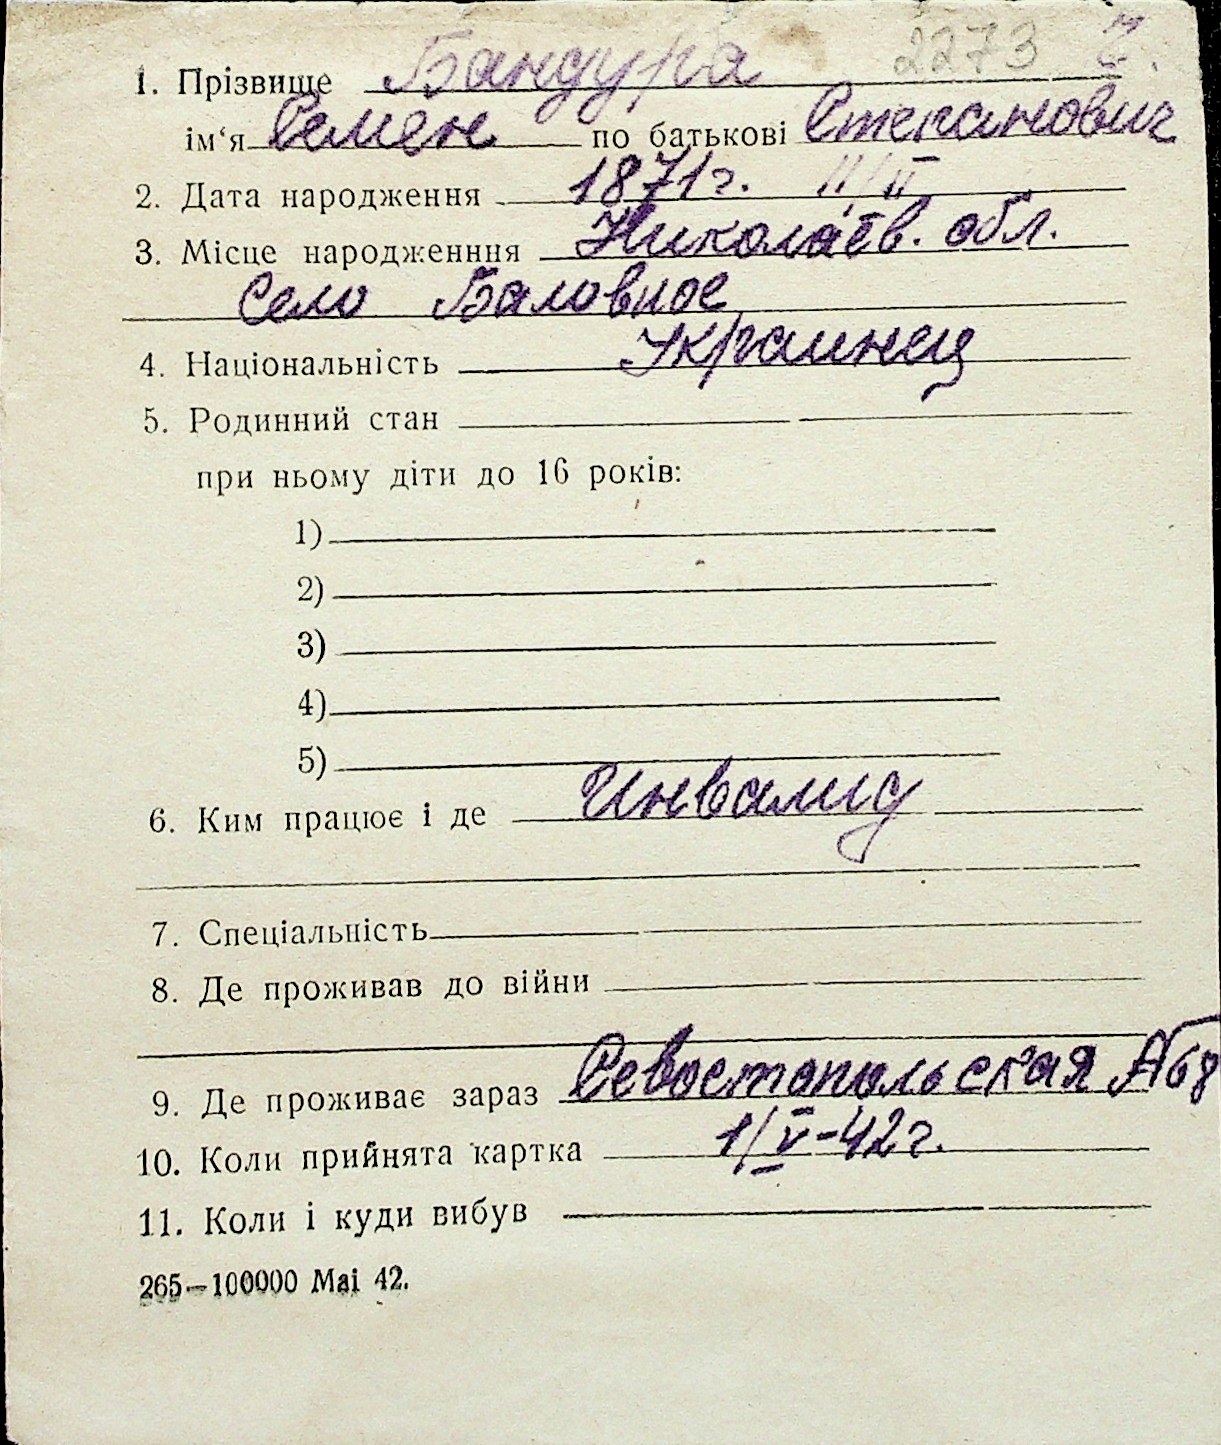 2273
1. Прізвище Бандура
ім‘я Семен по батькові Степанович
2. Дата народження 1871г. 11/II
3. Місце народженння Николаев. обл.
Село Баловное
4. Національність Украинец
5. Родинний стан
при ньому діти до 16 років:
1)
2)
3)
4)
5)
6. Ким працює і де Инвалид
7. Спеціальність
8. Де проживав до війни
9. Де проживає зараз Севостопольская №68
10. Коли прийнята картка 1/V-42г.
11. Коли і куди вибув
265—100000 Маі 42.